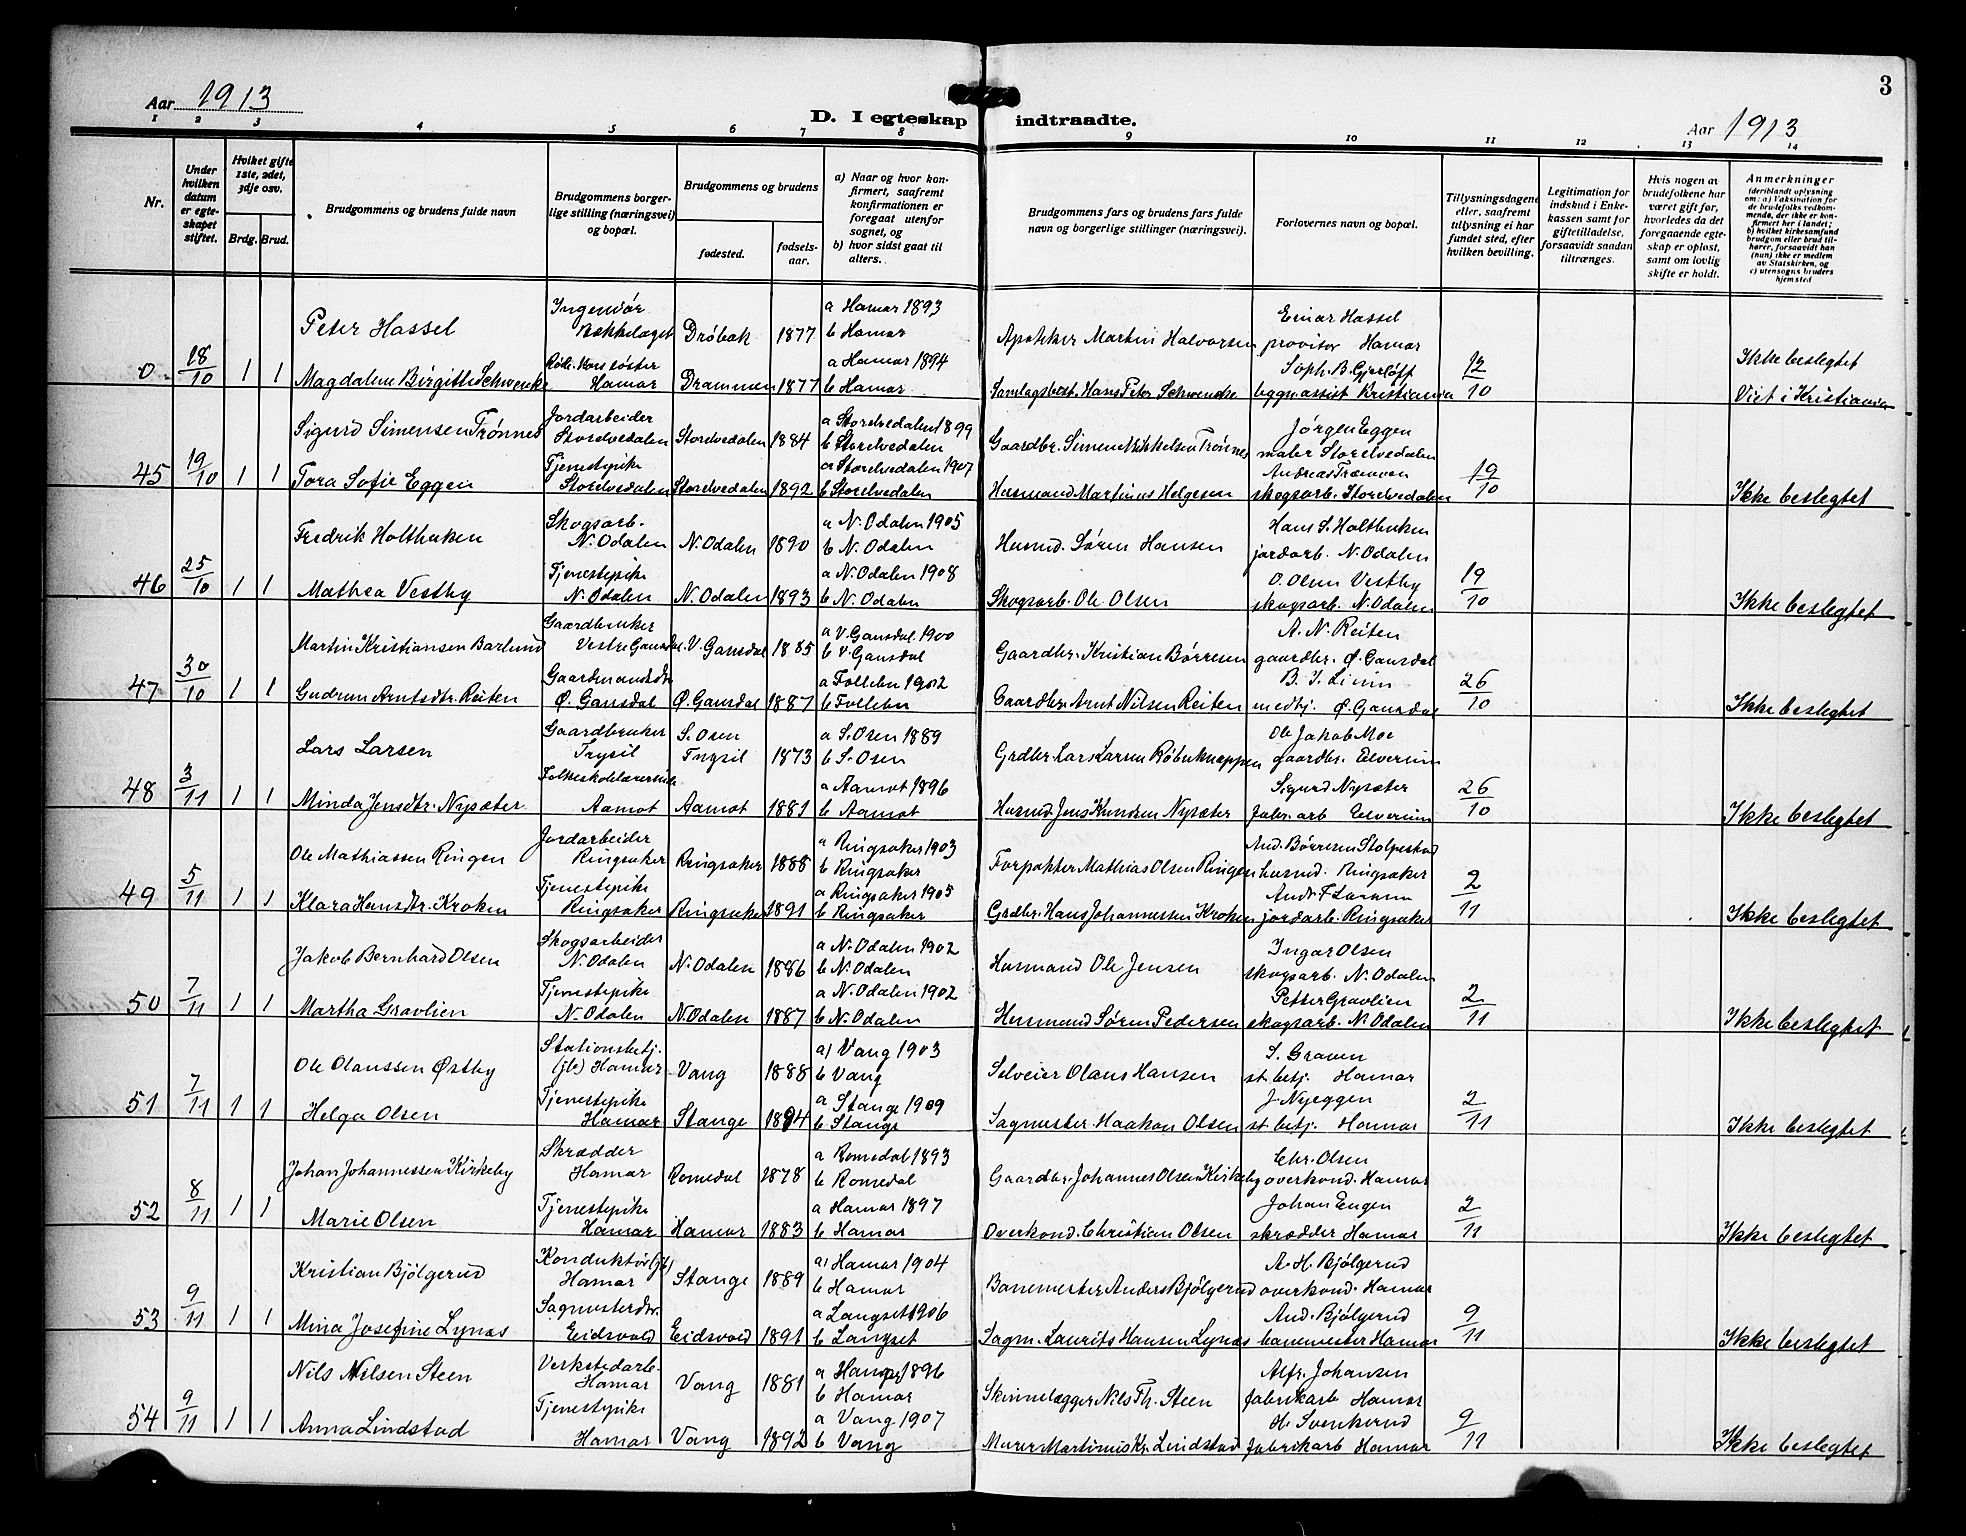 3
Aar 1913
D. I egteskap indtraadte.
Aar 1913
1 2 3 4 5 6 7 8 9 10 11 12 13 14
Nr.
Under hvilken datum er egteskapet stiftet.
Hvilket gifte 1ste, 2det, 3dje osv.
Brdg. Brud.
Brudgommens og brudens fulde navn
Brudgommens borgerlige stilling (næringsvei) og bopæl.
Brudgommens og brudens
fødested. fødselsaar.
a) Naar og hvor konfirmert, saafremt konfirmationen er foregaat utenfor sognet, og
b) hvor sidst gaat til alters.
Brudgommens fars og brudens fars fulde navn og borgerlige stillinger (næringsvei).
Forlovernes navn og bopæl.
Tillysningsdagene eller, saafremt tillysning ei har fundet sted, efter hvilken bevilling.
Legitimation for indskud i Enkekassen samt for giftetilladelse, forsaavidt saadan tiltrænges.
Hvis nogen av brudefolkene har været gift før, hvorledes da det foregaaende egteskap er opløst, samt om lovlig skifte er holdt.
Anmerkninger
(deriblandt oplysning om: a) Vaksination for de brudefolks vedkommende, der ikke er konfirmert her i landet; b) hvilket kirkesamfund brudgom eller brud tilhører, forsaavidt han (hun) ikke er medlem av Statskirken, og c) utensogns bruders hjemsted
0 18/10 1 1
Peter Hassel Ingeniør Bækkelaget Drøbak 1877 a Hamar 1893 b Hamar Apotheker Martin Halvorsen Einar Hassel provisor Hamar
Magdalene Birgitte Schwenke Røde Kors søster Hamar Drammen 1877 a Hamar 1894 b Hamar Samlagsbest. Hans Peter Schwenke Soph. B. Gjerløff bggmassist Kristiania 12/10 Ikke beslegtet Viet i Kristiania
45 19/10 1 1
Sigurd Simensen Trønnes Jordarbeider Storelvedalen Storelvedalen 1884 a Storelvedalen 1899 b Storelvedalen Gaardbr. Simen Mikkelsen Trønnes Jørgen Eggen maler Storelvedalen
Tora Sofie Eggen Tjenestepike Storelvedalen Storelvedalen 1892 a Storelvedalen 1907 b Storelvedalen Husmand Martinus Helgesen Andreas skogsarb. Storelvedalen 19/10 Ikke beslegtet
46 25/10 1 1
Fredrik Holthuken Skogsarb. N. Odalen N. Odalen 1890 a N. Odalen 1905 b N. Odalen Husmd. Søren Hansen Hans S. Holthuken jordarb. N. Odalen
Mathea Vestby Tjenestepike N. Odalen N. Odalen 1893 a N. Odalen 1908 b N. Odalen Skogsarb. Ole Olsen O. Olsen Vestby skogsarb. N. Odalen 19/10 Ikke beslegtet
47 30/10 1 1
Martin Kristiansen Barlund Gaardbruker Vestre Gausdal V. Gausdal 1885 a V. Gausdal 1900 b V. Gausdal Gaardbr. Kristian Børresen A. N. Reiten gaardbr. Ø. Gausdal
Gudrun Arntsdtr. Reiten Gaardmandsdtr Ø. Gausdal Ø. Gausdal 1887 a Follebu 1902 b Follebu Gaardbr. Arnt Nilsen Reiten B. J. Linin medhj. Ø. Gausdal 26/10 Ikke beslegtet
48 3/11 1 1
Lars Larsen Gaardbruker Trysil S. Osen Trysil 1873 a S. Osen 1889 b S. Osen Grdbr. Lars Larsen Røbuknappen Ole Jakob Moe gaardbr. Elverum
Minda Jensdtr. Nysæter Folkeskolelærerinde Aamot Aamot 1881 a Aamot 1896 b Aamot Husmd. Jens Knudsen Nysæter Sigurd Nysæter fabr. arb Elverum 26/10 Ikke beslegtet
49 5/11 1 1
Ole Mathiassen Ringen Jordarbeider Ringsaker Ringsaker 1888 a Ringsaker 1903 b Ringsaker Forpakter Mathias Olsen Ringen And. Børresen Stolpestad husmd. Ringsaker
Klara Hansdtr. Kroken Tjenestepike Ringsaker Ringsaker 1891 a Ringsaker 1905 b Ringsaker Grdbr. Hans Johannessen Kroken Andr. F. Larsen jordarb. Ringsaker 2/11 Ikke beslegtet
50 7/11 1 1
Jakob Bernhard Olsen Skogsarbeider N. Odalen N. Odalen 1886 a N. Odalen 1902 b N. Odalen Husmand Ole Jensen Ingar Olsen skogsarb. N. Odalen
Martha Gravlien Tjenestepike N. Odalen N. Odalen 1887 a N. Odalen 1902 b N. Odalen Husmand Søren Pedersen Petter Gravlien skogsarb. N. Odalen 2/11 Ikke beslegtet
51 7/11 1 1
Ole Olaussen Østby Stationsbetj. (jb) Hamar Vang 1888 a) Vang 1903 b Vang Selveier Olaus Hansen S. Graven st. betj. Hamar
Helga Olsen Tjenestepike Hamar Stange 1894 a Stange 1909 b Stange Sagmester Haakon Olsen J. Nyeggen st. betj. Hamar 2/11 Ikke beslegtet
52 8/11 1 1
Johan Johannessen Kirkeby Skrædder Hamar Romedal 1878 a Romedal 1893 b Romedal Gaardbr. Johannes Olsen Kirkeby Chr. Olsen overkond. Hamar
Marie Olsen Tjenestepike Hamar Hamar 1883 a Hamar 1897 b Hamar Overkond. Christian Olsen Johan Engen skrædder Hamar 2/11 Ikke beslegtet
53 9/11 1 1
Kristian Bjølgerud Konduktør (jb) Hamar Stange 1889 a) Hamar 1904 b Hamar Banemester Anders Bjølgerud A. H. Bjølgerud overkond. Hamar
Mina Josefine Lynås Sagmesterdtr. Eidsvold Eidsvold 1891 a Langset 1906 b Langset Sagm. Laurits Hansen Lynås And. Bjølgerud banemester Hamar 9/11 Ikke beslegtet
54 9/11 1 1
Nils Nilsen Steen Verkstedarb. Hamar Vang 1881 a Hamar 1896 b Hamar Skinnelægger Nils Th. Steen Alfr. Johansen fabrikarb Hamar
Anna Lindstad Tjenestepike Hamar Vang 1892 a Vang 1907 b Vang Murer Martinius Kr. Lindstad H. Svenkerud fabrikarb Hamar 9/11 Ikke beslegtet